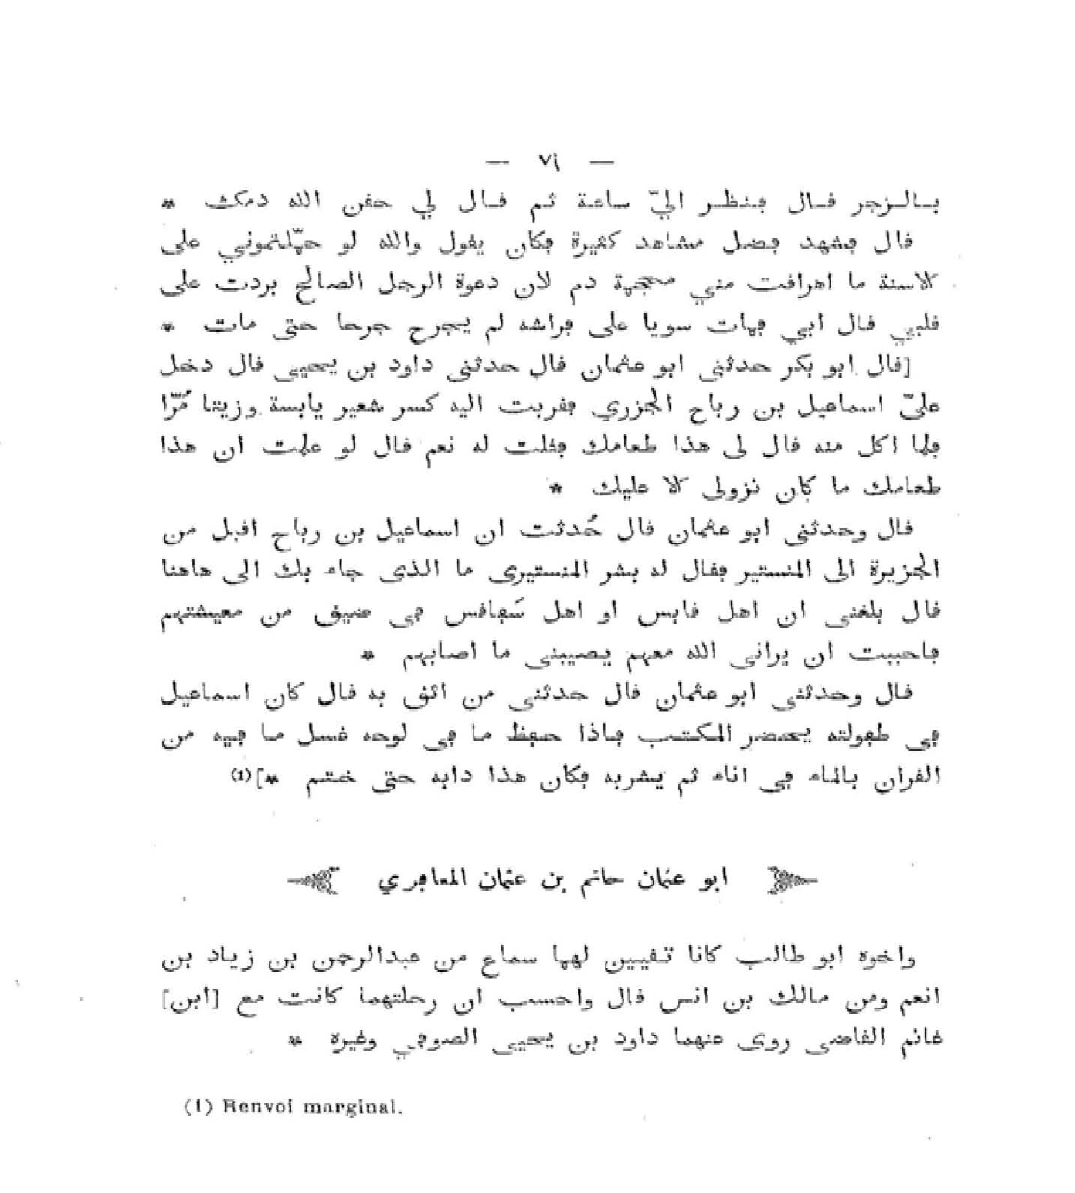 — ٧١ —
بالزجر قال فنظر اليّ ساعة ثم قال لي حقن الله دمك *
قال فشهد فضل مشاهد كثيرة فكان يقول والله لو حمّلتموني على
الاسنة ما اهراقت مني محجمة دم لان دعوة الرجل الصالح بردت على
قلبي قال ابي فمات سويا على فراشه لم يجرح جرحا حتى مات *
[قال ابو بكر حدثني ابو عثمان قال حدثني داود بن يحيى قال دخل
عليّ اسماعيل بن رباح الجزري فقربت اليه كسر شعير يابسة وزيتا مُرّا
فلما اكل منه قال لى هذا طعامك فقلت له نعم قال لو علمت ان هذا
طعامك ما كان نزولى الا عليك *
قال وحدثنى ابو عثمان قال حُدثت ان اسماعيل بن رباح اقبل من
الجزيرة الى المنستير فقال له بشر المنستيرى ما الذى جاء بك الى هاهنا
قال بلغنى ان اهل قابس او اهل سَفاقس فى ضيق من معيشتهم
فاحببت ان يرانى الله معهم يصيبنى ما اصابهم *
قال وحدثنى ابو عثمان قال حدثنى من اثق به قال كان اسماعيل
فى طفولته يحضر المكتب فاذا حفظ ما فى لوحه غسل ما فيه من
القران بالماء في اناء ثم يشربه فكان هذا دابه حتى ختم *](1)
ابو عثمان حاتم بن عثمان المعافري
واخوه ابو طالب كانا ثقيين لهما سماع من عبدالرحمن بن زياد بن
انعم ومن مالك بن انس قال واحسب ان رحلتهما كانت مع [ابن]
غانم القاضى روى عنهما داود بن يحيى الصوفي وغيره *
(1) Renvoi marginal.